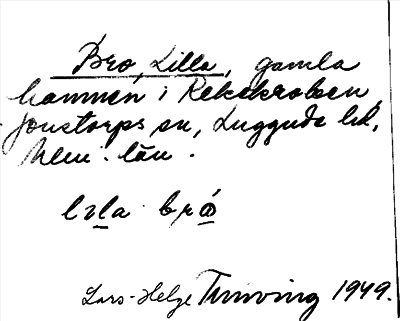 Bro, Lilla, gamla
hamnen i Rekekroken,
Jonstorps sn, Luggude hd,
Mlm. län.
lɩla brå
Lars-Helge Tunving 1949.